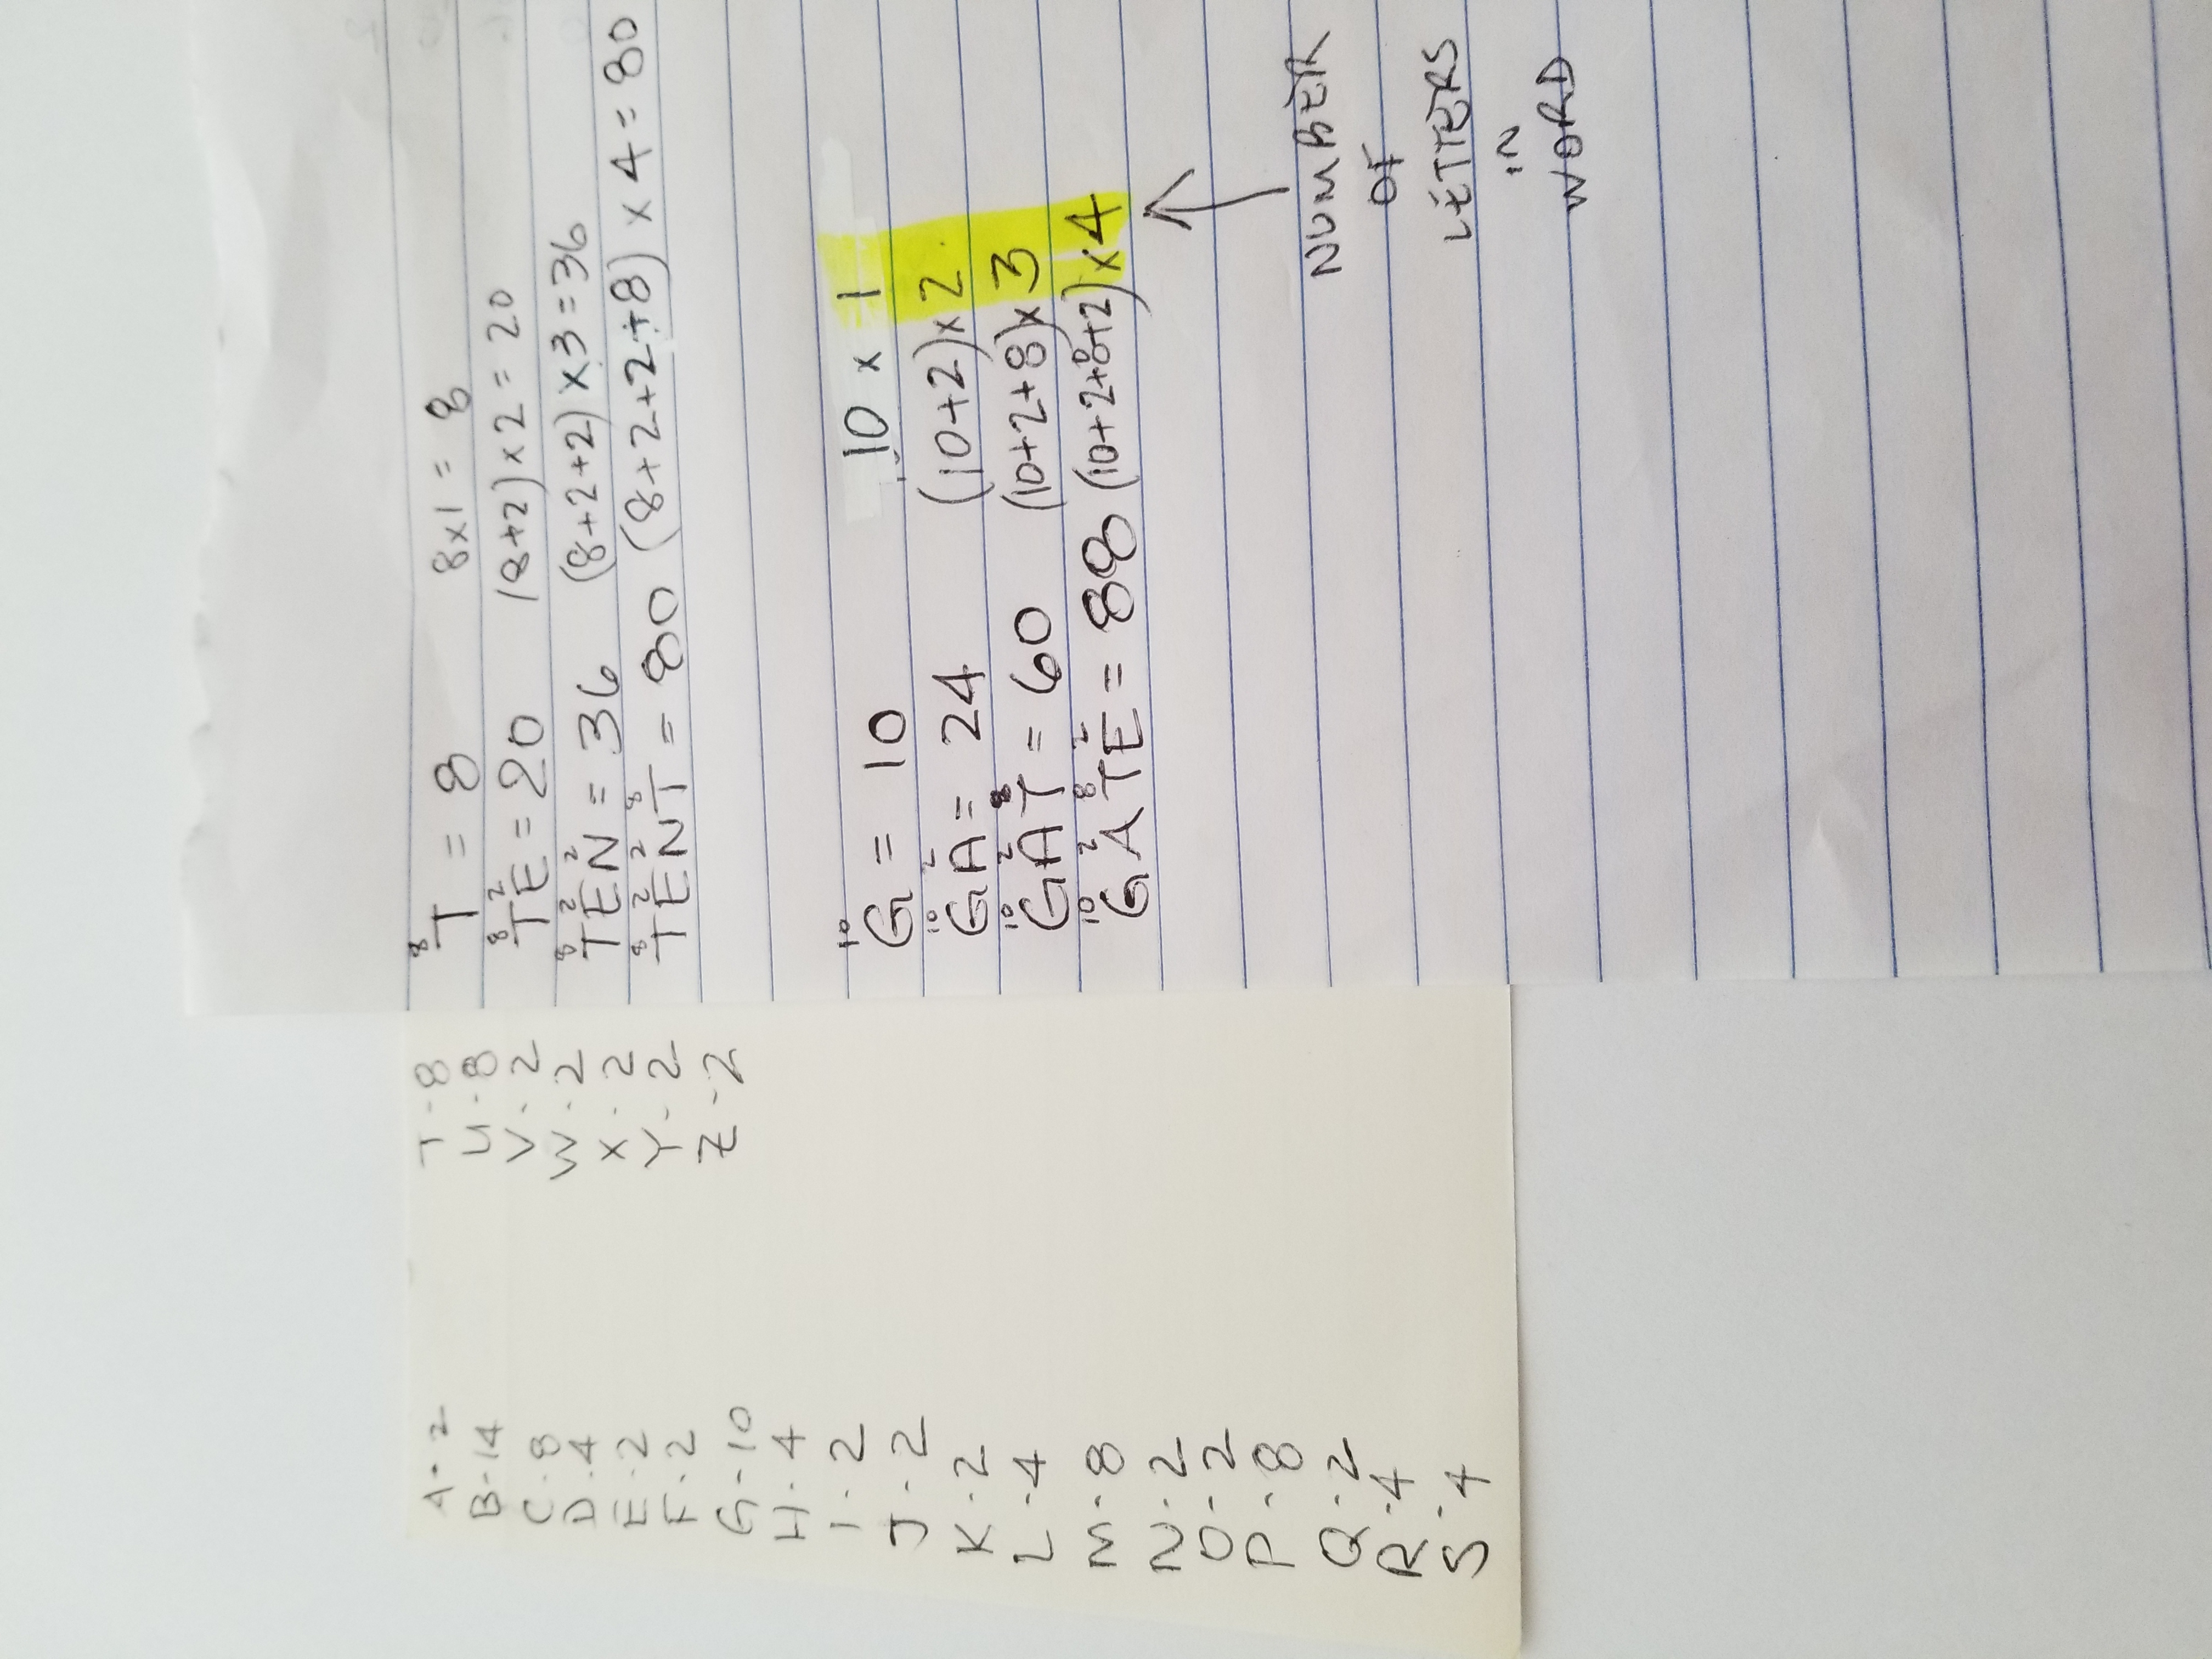 T = 8 8x1 = 8
8
TE = 20 (8+2)x2 = 20
8 2
TEN = 36 (8+2+2)x3=36
8 2 2
TENT = 80 (8+2+2+8) x 4 = 80
8 2 2 8
G = 10 10 x 1
10
GA = 24 (10+2)x2
10 2
GAT = 60 (10+2+8)x3
10 2 8
GATE = 88 (10+2+8+2)x4
10 2 8 2
NUMBER
OF
LETTERS
IN
WORD
A-2
B-14
C-8
D-4
E-2
F-2
G-10
H-4
I-2
J-2
K-2
L-4
M-8
N-2
O-2
P-8
Q-2
R-4
S-4
T-8
U-8
V-2
W-2
X-2
Y-2
Z-2